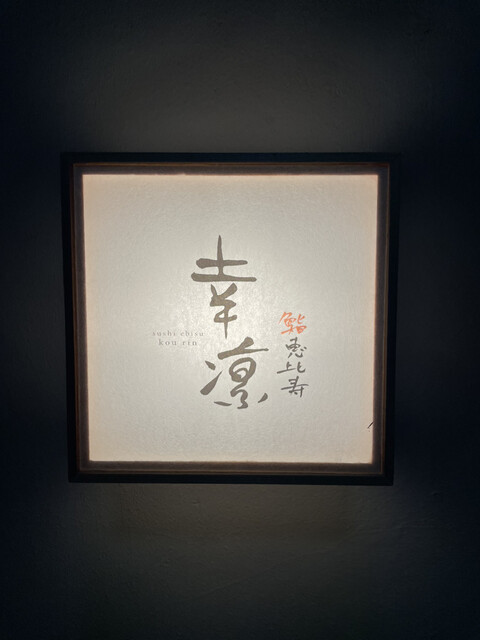 鮨 恵比寿
幸凛
sushi ebisu
kou rin